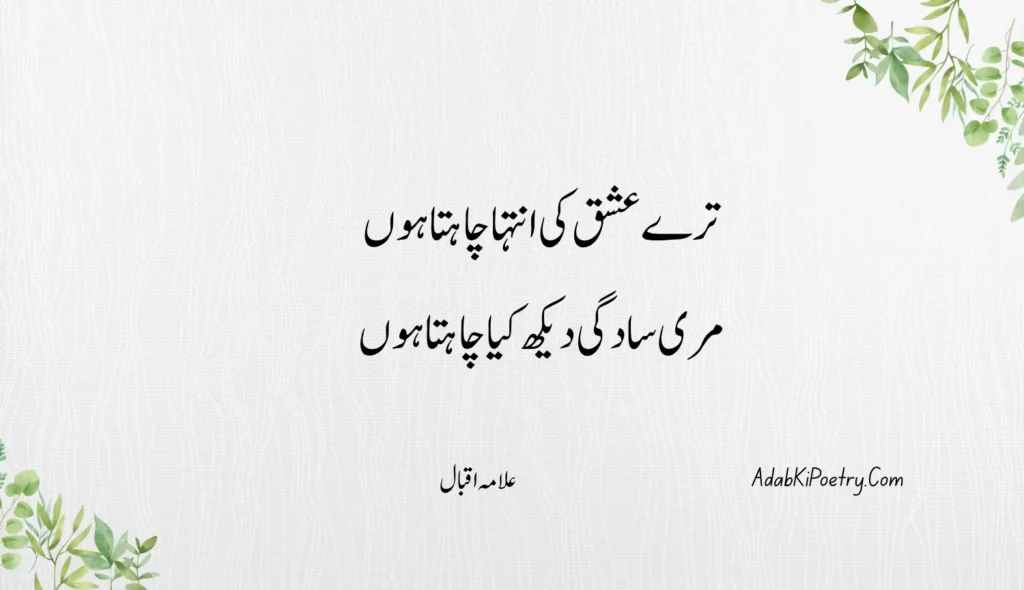 ترے عشق کی انتہا چاہتا ہوں
مری سادگی دیکھ کیا چاہتا ہوں
علامہ اقبال
AdabKiPoetry.Com